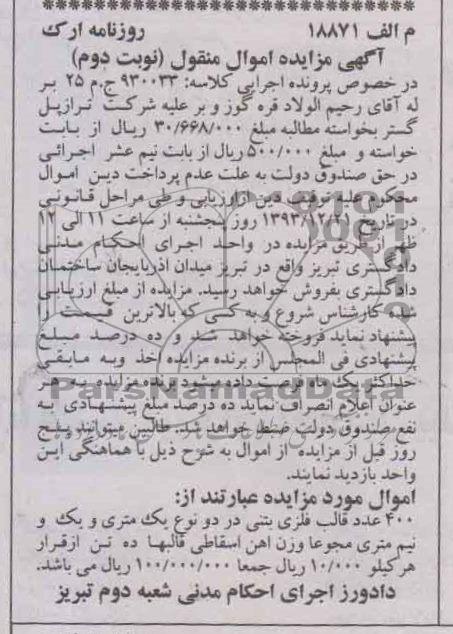 م الف ۱۸۸۷۱ روزنامه ارک
آگهی مزایده اموال منقول (نوبت دوم)
در خصوص پرونده اجرایی کلاسه: ۹۳۰۰۳۳ ج.م ۲۵ بر
له آقای رحیم الولاد قره گوز و بر علیه شرکت ترازپل
گستر بخواسته مطالبه مبلغ ۳۰/۶۶۸/۰۰۰ ریال از بابت
خواسته و مبلغ ۵۰۰/۰۰۰ ریال از بابت نیم عشر اجرائی
در حق صندوق دولت به علت عدم پرداخت دین اموال
محکوم علیه توقیف دین از ارزیابی و طی مراحل قانونی
در تاریخ ۱۳۹۳/۱۲/۲۱ روز پنجشنبه از ساعت ۱۱ الی ۱۲
ظهر از طریق مزایده در واحد اجرای احکام مدنی
دادگستری تبریز واقع در تبریز میدان اذربایجان ساختمان
دادگستری بفروش خواهد رسید. مزایده از مبلغ ارزیابی
شده کارشناس شروع و به کسی که بالاترین قیمت را
پیشنهاد نماید فروخته خواهد شد و ده درصد مبلغ
پیشنهادی فی المجلس از برنده مزایده اخذ وبه مابقی
حداکثر یک ماه فرصت داده میشود برنده مزایده به هر
عنوان اعلام انصراف نماید ده درصد مبلغ پیشنهادی به
نفع صندوق دولت ضبط خواهد شد. طالبین میتوانند پنج
روز قبل از مزایده از اموال به شرح ذیل با هماهنگی این
واحد بازدید نمایند.
اموال مورد مزایده عبارتند از:
۴۰۰ عدد قالب فلزی بتنی در دو نوع یک متری و یک و
نیم متری مجوعا وزن اهن اسقاطی قالبها ده تن ازقرار
هر کیلو ۱۰/۰۰۰ ریال جمعا ۱۰۰/۰۰۰/۰۰۰ ریال می باشد.
دادورز اجرای احکام مدنی شعبه دوم تبریز
ParsNamadData